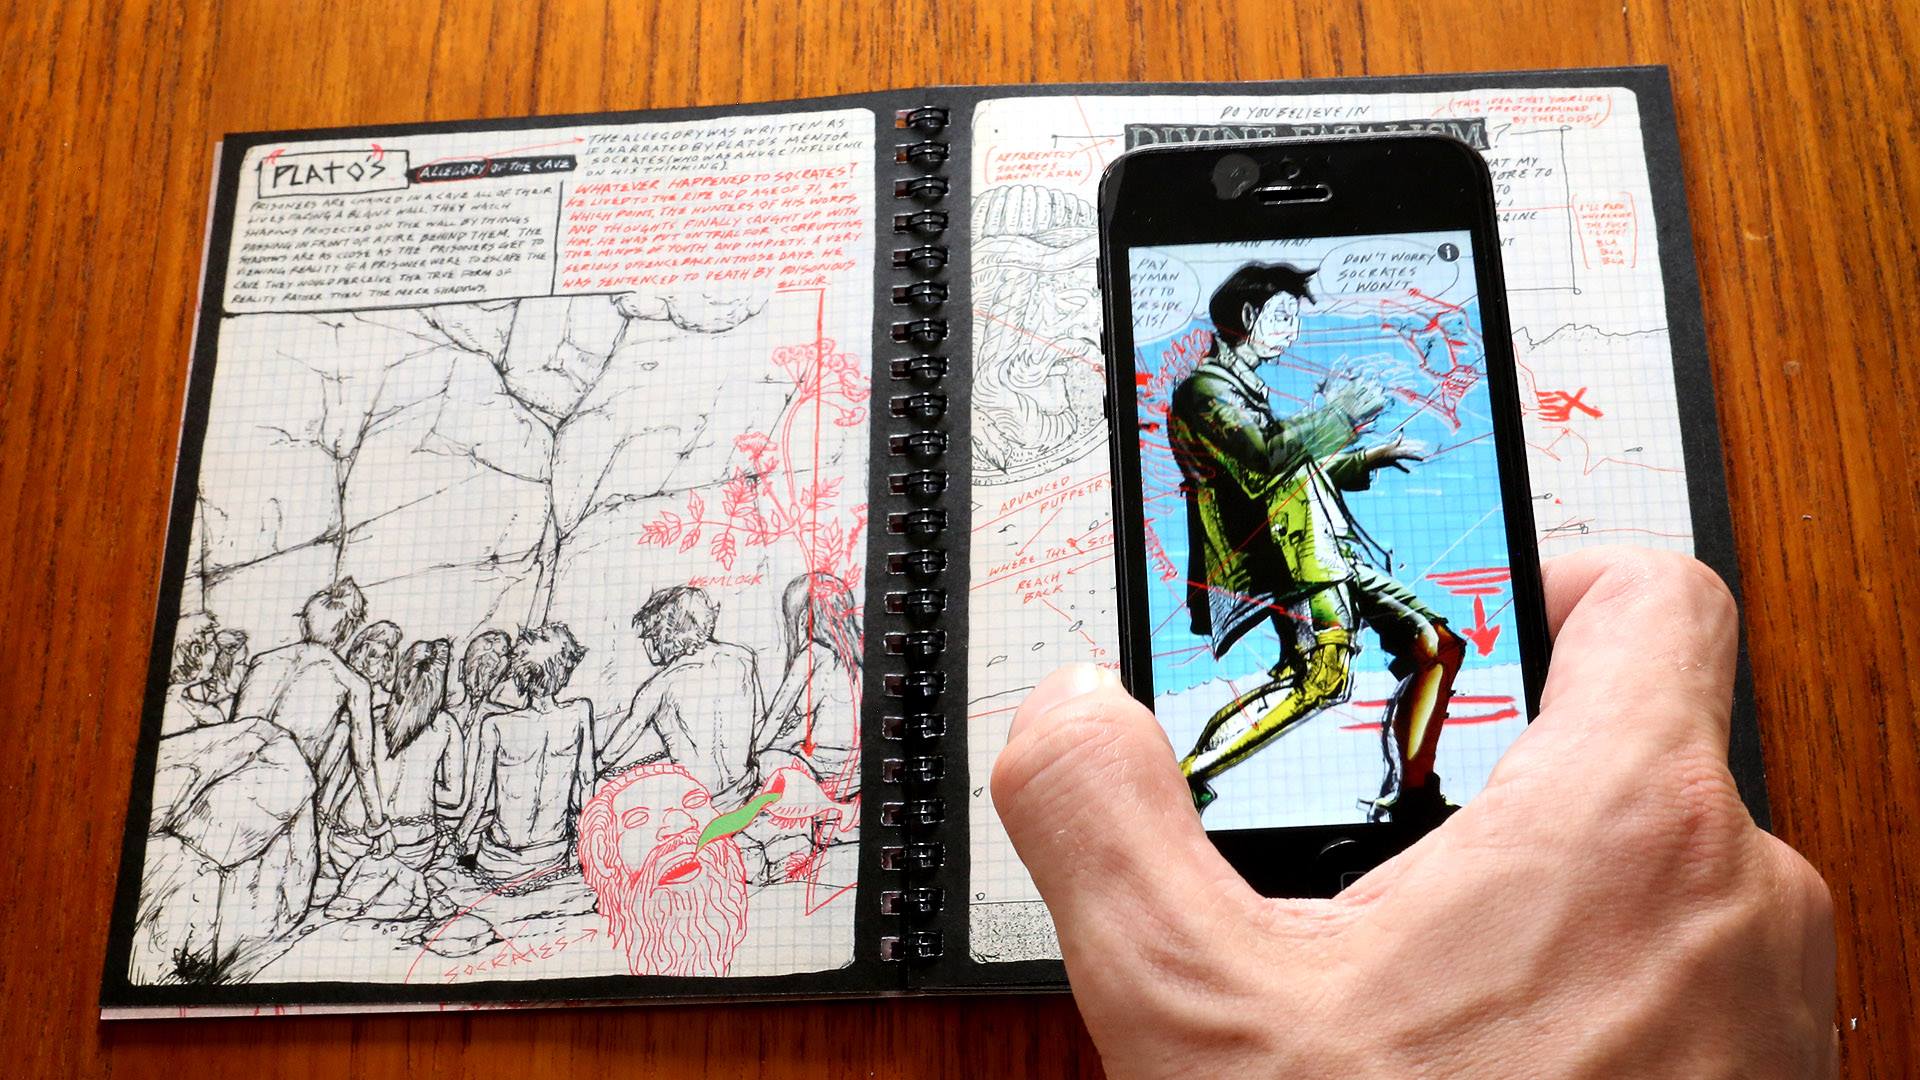 PLATO'S
ALLEGORY OF THE CAVE
PRISONERS ARE CHAINED IN A CAVE ALL OF THEIR
LIVES FACING A BLANK WALL. THEY WATCH
SHADOWS PROJECTED ON THE WALL BY THINGS
PASSING IN FRONT OF A FIRE BEHIND THEM. THE
SHADOWS ARE AS CLOSE AS THE PRISONERS GET TO
VIEWING REALITY. IF A PRISONER WERE TO ESCAPE THE
CAVE THEY WOULD PERCEIVE THE TRUE FORM OF
REALITY RATHER THEN THE MERE SHADOWS.
THE ALLEGORY WAS WRITTEN AS
IF NARRATED BY PLATO'S MENTOR
SOCRATES (WHO WAS A HUGE INFLUENCE
ON HIS THINKING).
WHATEVER HAPPENED TO SOCRATES?
HE LIVED TO THE RIPE OLD AGE OF 71, AT
WHICH POINT, THE HUNTERS OF HIS WORDS
AND THOUGHTS FINALLY CAUGHT UP WITH
HIM. HE WAS PUT ON TRIAL FOR CORRUPTING
THE MINDS OF YOUTH AND IMPIETY. A VERY
SERIOUS OFFENCE BACK IN THOSE DAYS. HE
WAS SENTENCED TO DEATH BY POISONOUS
ELIXIR
HEMLOCK
SOCRATES
DO YOU BELIEVE IN
DIVINE FATALISM?
(THIS IDEA THAT YOUR LIFE
IS PREDETERMINED
BY THE GODS!)
(APPARENTLY
SOCRATES
WASN'T A FAN)
HAT MY
MORE TO
TO
H I
AGINE
NT
I'LL PARK
WHEREVER
THE FUCK
I LIKE!
BLA
BLA
BLA
THAN THAT!
PAY
RYMAN
GET TO
R SIDE
XIS!
DON'T WORRY
SOCRATES
I WON'T
i
ADVANCED
PUPPETRY
WHERE THE
REACH
BACK
TO
THE